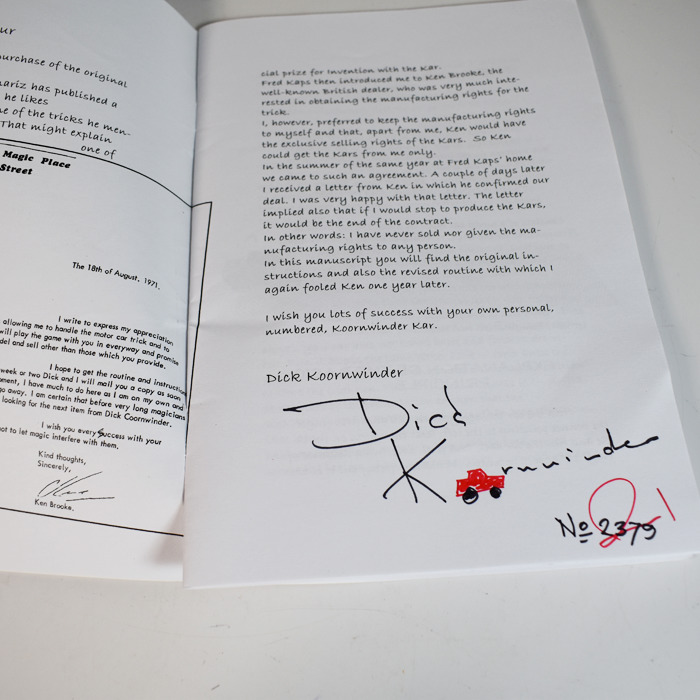 ur
urchase of the original
ariz has published a
he likes
e of the tricks he men-
That might explain
one of
Magic Place
Street
The 18th of August, 1971.
I write to express my appreciation
allowing me to handle the motor car trick and to
will play the game with you in everyway and promise
del and sell other than those which you provide.
I hope to get the routine and instructions
week or two Dick and I will mail you a copy as soon
oment, I have much to do here as I am on my own and
go away. I am certain that before very long magicians
looking for the next item from Dick Coornwinder.
I wish you every Success with your
not to let magic interfere with them.
Kind thoughts,
Sincerely,
Ken Brooke.
cial prize for Invention with the Kar.
Fred Kaps then introduced me to Ken Brooke, the
well-known British dealer, who was very much inte-
rested in obtaining the manufacturing rights for the
trick.
I, however, preferred to keep the manufacturing rights
to myself and that, apart from me, Ken would have
the exclusive selling rights of the Kars. So Ken
could get the Kars from me only.
In the summer of the same year at Fred Kaps' home
we came to such an agreement. A couple of days later
I received a letter from Ken in which he confirmed our
deal. I was very happy with that letter. The letter
implied also that if I would stop to produce the Kars,
it would be the end of the contract.
In other words: I have never sold nor given the ma-
nufacturing rights to any person.
In this manuscript you will find the original in-
structions and also the revised routine with which I
again fooled Ken one year later.
I wish you lots of success with your own personal,
numbered, Koornwinder Kar.
Dick Koornwinder
Dick
Koornwinder
№ 2379